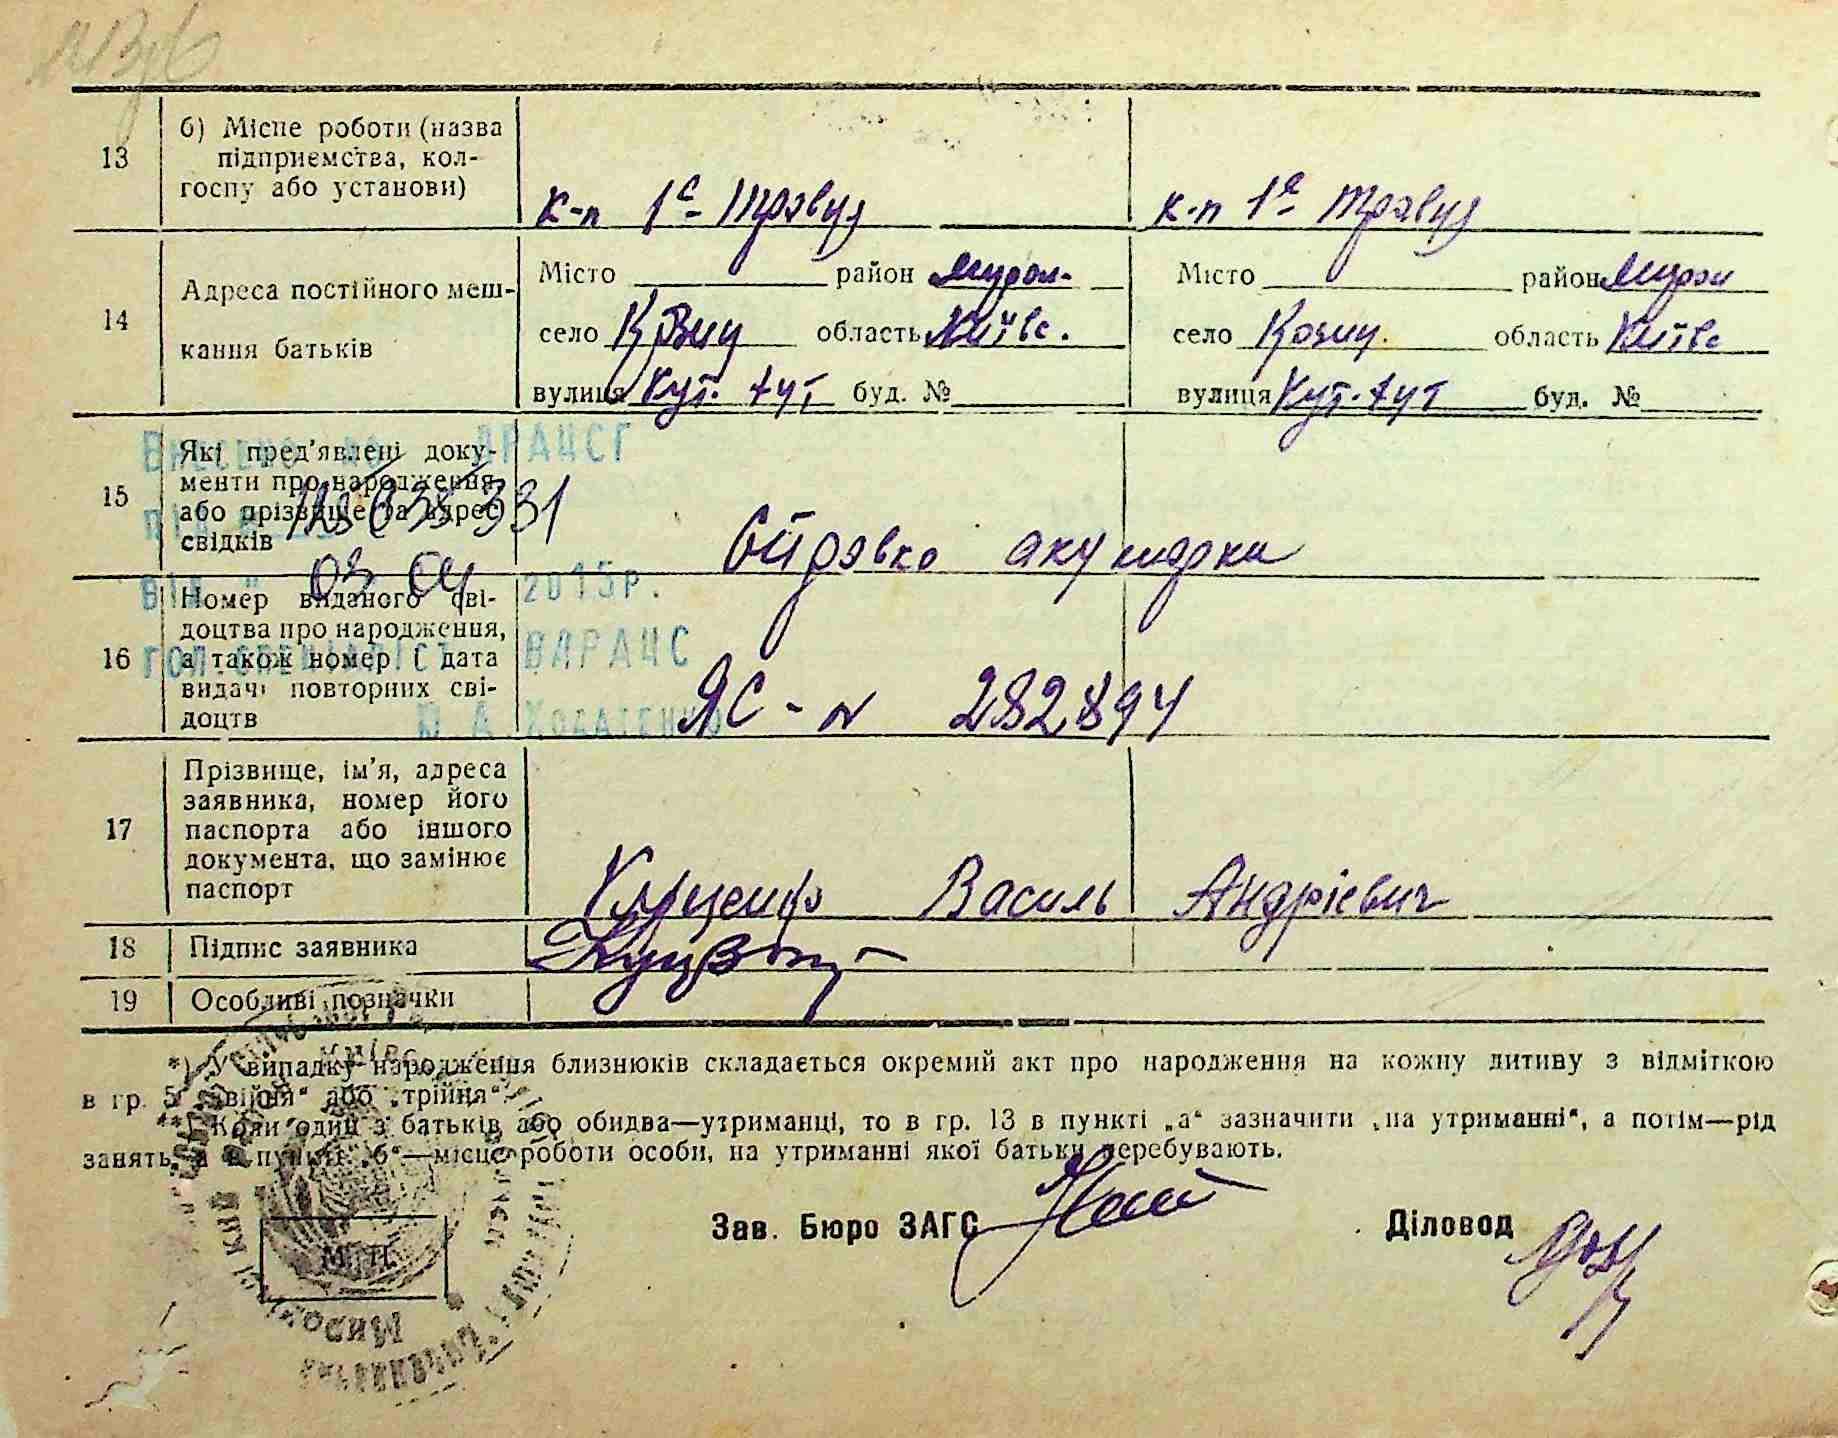 13
б) Місце роботи (назва
підприємства, кол-
госпу або установи)
к-п 1е Травня
к-п 1е Травня
14
Адреса постійного меш-
кання батьків
Місто район Мирон-
село Козин область Київс.
вулиця Кут. буд. №
Місто район Мирон
село Козин. область Київс
вулиця Кут. буд. №
15
Які пред'явлені доку-
менти про народження
або прізвище та адрес
свідків
Внесено до ДРАЦСГ
03 04 2015р.
Гол. спеціаліст ВДРАЦС
Ю А
Справка акушерки
16
Номер виданого сві-
доцтва про народження,
а також номер і дата
видачі повторних сві-
доцтв
ЯС - N 282894
17
Прізвище, ім'я, адреса
заявника, номер його
паспорта або іншого
документа, що замінює
паспорт
Куценко Василь Андрієвич
18
Підпис заявника
19
Особливі позначки
*) У випадку народження близнюків складається окремий акт про народження на кожну дитину з відміткою
в гр. 5 „двійня“ або „трійня“.
**) Коли один з батьків або обидва—утриманці, то в гр. 13 в пункті „а“ зазначити „на утриманні“, а потім—рід
занять, а в пункті „б“—місце роботи особи, на утриманні якої батьки перебувають.
Зав. Бюро ЗАГС
Діловод
М. П.